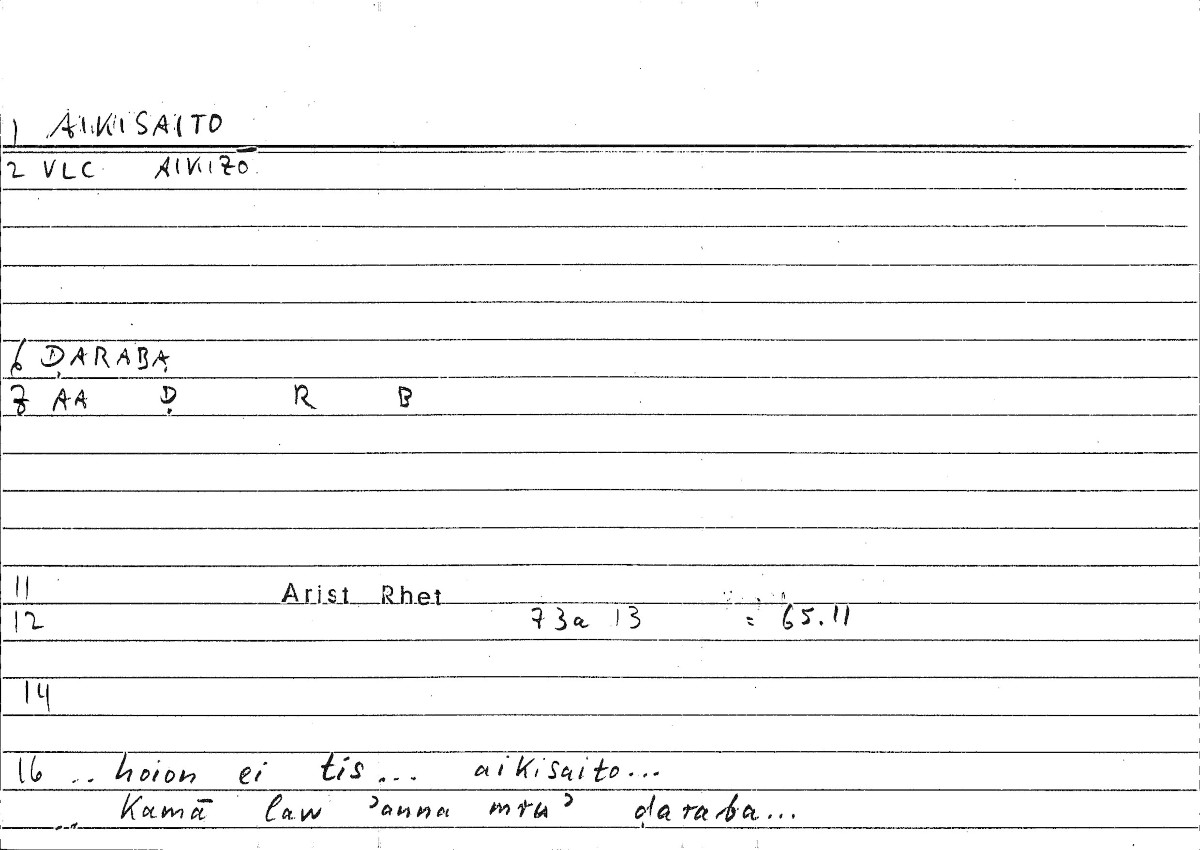 1 AIKISAITO
2 VLC AIKIZŌ
6 ḌARABA
7 AA Ḍ R B
11 Arist Rhet
12 73a 13 = 65.11
14
16 .. hoion ei tis... aikisaito...
.. Kamā law ʾanna mruʾ ḍaraba...